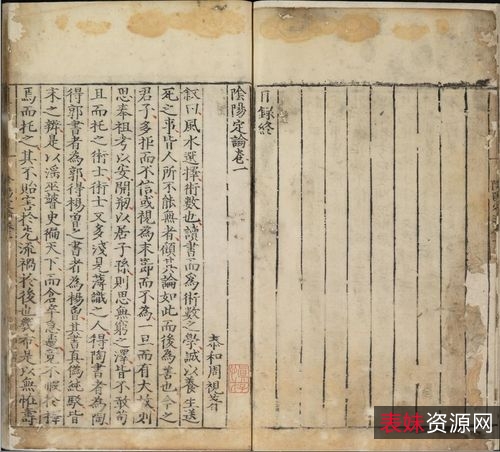 目錄終
陰陽定論卷一
泰和周視
叙曰風水選擇術數也讀書而為術數之學誠以養生送
死之事皆人所不能無者傾其論如此而後為善也今之
君子多拒而不信或視為末節而不為一旦而有大故則
思奉祖考以安開剏以居子孫則思無窮之澤皆不敢苟
且而托之術士術士又多淺見薄識之人得陶書者為陶
得郭書者為郭得楊曾之書者為楊曾其書真偽純駁皆
未之辨是以淫巫瞽史徧天下而倉卒急遽不暇於擇
焉而托之其不貽害於先流禍於後也幾希是以無惟壽
表妹资源网